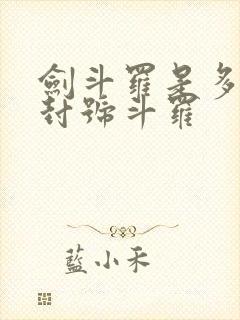 劍斗羅是多
封號斗羅
藍小禾